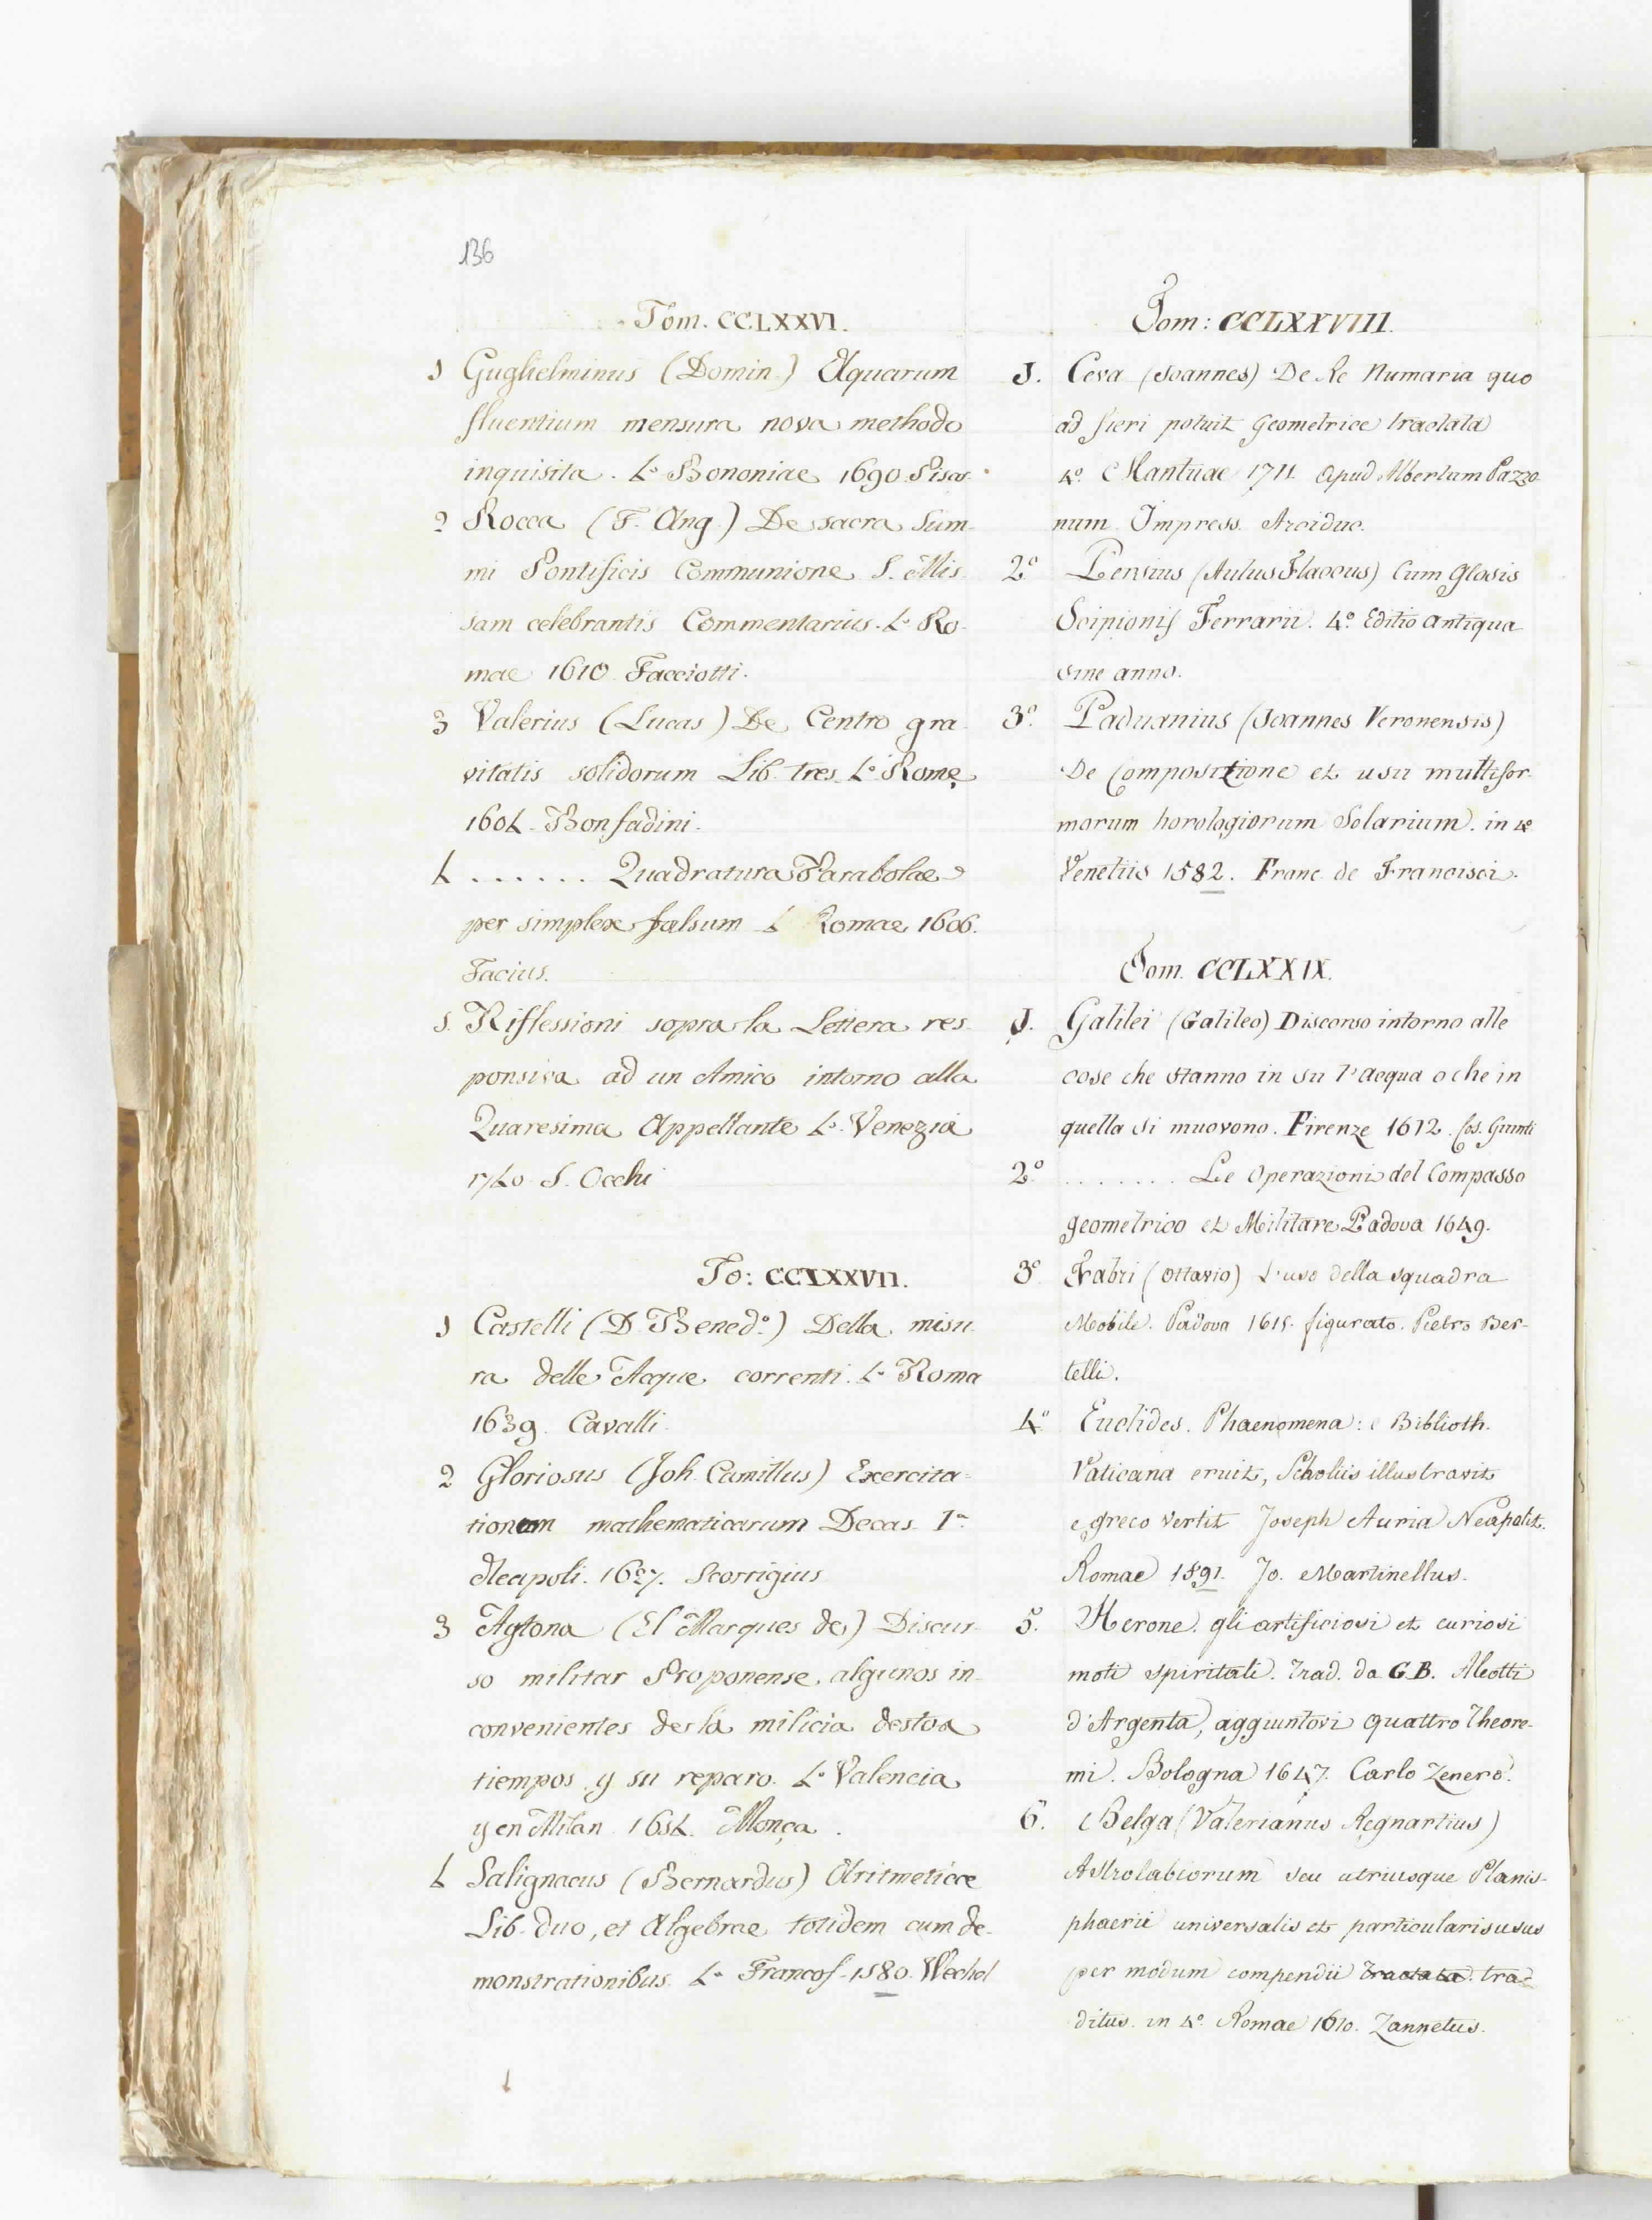 136
Tom. CCLXXVI.
1 Guglielminus (Domin.) Aquarum
fluentium mensura nova methodo
inquisita. 4.º Bononiae 1690. Pisar.
2 Rocca (F. Ang.) De sacra Sum-
mi Pontificis Communione S. Mis-
sam celebrantis Commentarius. 4.º Ro-
mae 1610 Facciotti.
3 Valerius (Lucas) De Centro gra-
vitatis solidorum Lib. tres. 4.º Romę
1604. Bonfadini.
4 ...... Quadratura Parabolae
per simplex falsum 4 Romae 1606.
Facius.
5. Riflessioni sopra la Lettera res-
ponsiva ad un Amico intorno alla
Quaresima Appellante 4.º Venezia
1740 S. Occhi
To: CCLXXVII.
1 Castelli (D. Bened.º) Della misu-
ra delle Acque correnti. 4.º Roma
1639. Cavalli.
2 Gloriosus (Joh. Camillus) Exercita-
tionum mathematicarum Decas 1.ª
Neapoli. 1627. Scorrigius
3 Aytona (El Marques de) Discur-
so militar Proponense algunos in-
convenientes de la milicia destos
tiempos y su reparo. 4.º Valencia
y en Milan 1654. Monça.
4 Salignacus (Bernardus) Aritmeticae
Lib. duo, et Algebrae totidem cum de-
monstrationibus. 4.º Francof. 1580. Wechel
Tom: CCLXXVIII.
1. Ceva (Joannes) De Re Numaria quo
ad fieri potuit geometrice tractata
4.º Mantuae 1711. Apud Albertum Pazzo-
num Impress. Arciduc.
2.º Persius (Aulus Flaccus) Cum Glosis
Scipionis Ferrarii. 4.º Editio antiqua
sine anno.
3.º Paduanius (Joannes Veronensis)
De Compositione et usu multifor-
marum horologiorum Solarium. in 4º
Venetiis 1582. Franc. de Francisci.
Tom. CCLXXIX.
1. Galilei (Galileo) Discorso intorno alle
cose che stanno in su l'acqua o che in
quella si muovono. Firenze 1612. Cos. Giunti
2.º ........ Le Operazioni del Compasso
geometrico et Militare Padova 1649.
3.º Fabri (Ottavio) L'uso della squadra
Mobile. Padova 1615. figurato. Pietro Ber-
telli.
4.º Euclides. Phaenomena: e Biblioth.
Vaticana eruit, Scholiis illustravit
e greco vertit Joseph Auria Neapolit.
Romae 1591. Jo. Martinellus.
5. Herone. gli artificiosi et curiosi
moti spiritali. Trad. da G.B. Aleotti
d'Argenta, aggiuntovi quattro Theore-
mi. Bologna 1647. Carlo Zenero.
6. Belga (Valerianus Regnartius)
Astrolabiorum seu utriusque Planis-
phaerii universalis et particularis usus
per modum compendii tractata. tra-
ditus. in 4.º Romae 1610. Zannetus.